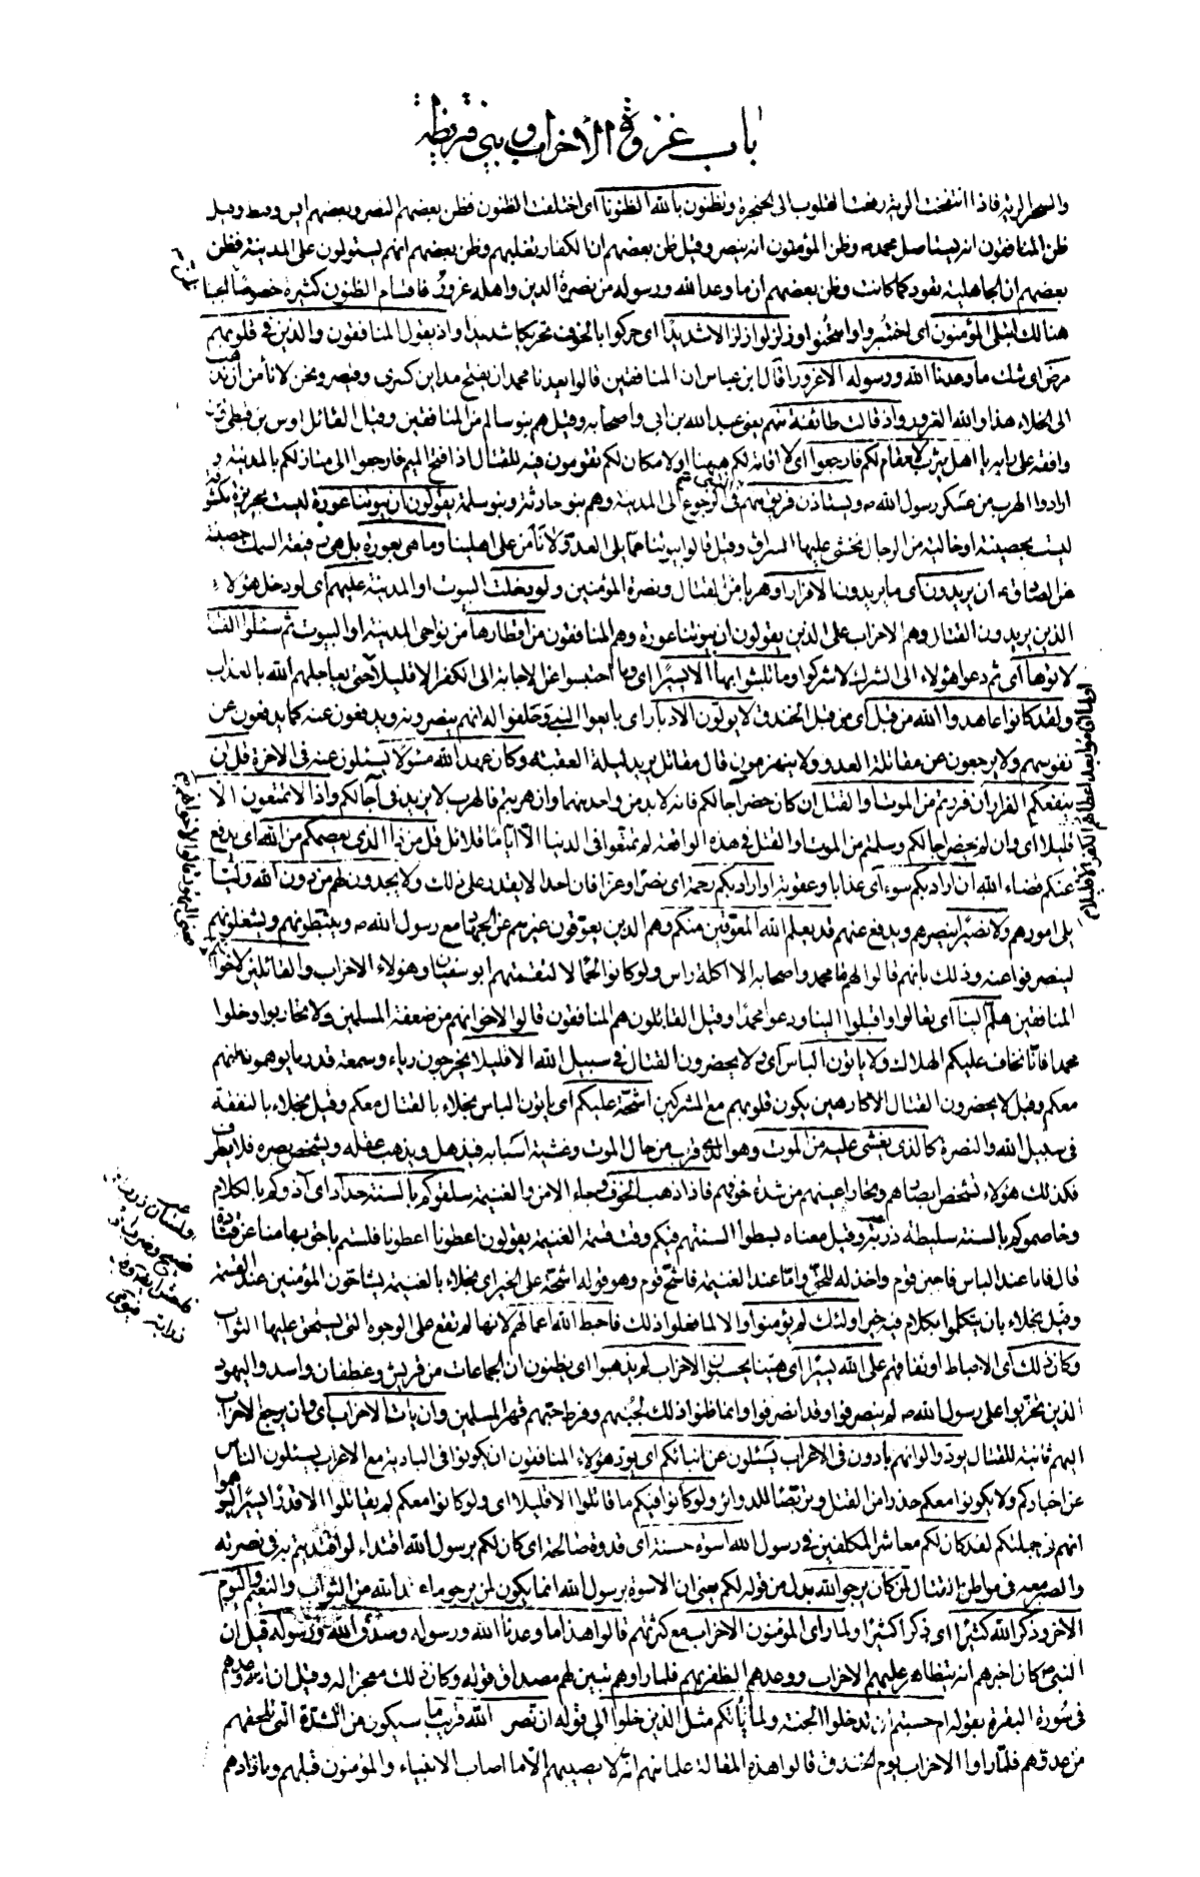 باب غزوة الأحزاب وبني قريظة
والسحر الرية فاذا انتفخت الرية رفعت القلوب الى الحنجرة وتظنون بالله الظنونا اى اختلفت الظنون فظن بعضكم النصر وبعضهم ايس وقنط وقيل
ظن المنافقون انه يستأصل محمد وظن المؤمنون انه ينصر وقيل ظن بعضهم ان الكفار تغلبهم وظن بعضهم انهم يستولون على المدينة وظن
بعضهم ان الجاهلية تعود كما كانت وظن بعضهم ان ما وعد الله ورسوله من نصرة الدين واهله غرور فاقسام الظنون كثيرة خصوصا
هنالك ابتلى المؤمنون اى اختبروا وامتحنوا وزلزلوا زلزالا شديدا اى حركوا بالخوف تحريكا شديدا واذ يقول المنافقون والذين فى قلوبهم
مرض اى شك ما وعدنا الله ورسوله الا غرورا قال ابن عباس ان المنافقين قالوا يعدنا محمد ان يفتح مداين كسرى وقيصر ونحن لا نأمن ان نذهب
الى الخلاء هذا والله الغرور واذ قالت طائفة منهم يعنى عبد الله بن ابى واصحابه وقيل هم بنو سالم من المنافقين وقيل القائل اوس بن قيظى ومن
وافقه على رأيه يا اهل يثرب لا مقام لكم فارجعوا اى لا اقامة لكم ههنا او لا مكان لكم تقومون فيه للقتال اذا فتح الميم فارجعوا الى منازلكم بالمدينة و
ارادوا الهرب من عسكر رسول الله ص ويستأذن فريق منهم النبى فى الرجوع الى المدينة وهم بنو حارثة وبنو سلمة يقولون ان بيوتنا عورة ليست بحريزة مكشوفة
ليست بحصينة او خالية من الرجال نخشى عليها السراق وقيل قالوا بيوتنا مما يلى العدو ولا نأمن على اهلينا وما هى بعورة بل هى رفيعة السمك حصينة
عن الصادق ع ان يريدون اى ما يريدون الا فرارا وهربا من القتال ونصرة المؤمنين ولو دخلت البيوت او المدينة عليهم اى لو دخل هؤلاء
الذين يريدون القتال وهم الاحزاب على الذين يقولون ان بيوتنا عورة وهم المنافقون من اقطارها من نواحى المدينة او البيوت ثم سئلوا الفتنة
لاتوها اى ثم دعوا هؤلاء الى الشرك لاشركوا وما تلبثوا بها الا يسيرا اى وما احتبسوا عن الاجابة الى الكفر الا قليلا حتى يعاجلهم الله بالعذاب
ولقد كانوا عاهدوا الله من قبل اى من قبل الخندق لا يولون الادبار اى بايعوا النبى وحلفوا له انهم ينصرونه ويدفعون عنه كما يدفعون عن
نفوسهم ولا يرجعون عن مقاتلة العدو ولا ينهزمون قال مقاتل يريد ليلة العقبة وكان عهد الله مسئولا يسئلون عنه فى الاخرة قل لن
ينفعكم الفرار ان فررتم من الموت او القتل ان كان حضر آجالكم فانه لا بد من واحد منهما وان هربتم فالهرب لا يزيد فى آجالكم واذا لا تمتعون الا
قليلا اى وان لم يحضر اجالكم وسلمتم من الموت او القتل فى هذه الواقعة لم تمتعوا فى الدنيا الا اياما قلائل قل من ذا الذى يعصمكم من الله اى يدفع
عنكم قضاء الله ان اراد بكم سوءا اى عذابا وعقوبة او اراد بكم رحمة اى نصرا وعزا فان احدا لا يقدر على ذلك ولا يجدون لهم من دون الله وليا
يلى امورهم ولا نصيرا ينصرهم ويدفع عنهم قد يعلم الله المعوقين منكم وهم الذين يعوقون غيرهم عن الجهاد مع رسول الله ص ويثبطونهم ويشغلونهم
لينصرفوا عنه وذلك بانهم قالوا لهم ما محمد واصحابه الا اكلة رأس ولو كانوا لحما لالتقمهم ابو سفيان وهؤلاء الاحزاب والقائلين لاخوانهم
المنافقين هلم الينا اى تعالوا واقبلوا الينا ودعوا محمدا وقيل القائلون هم المنافقون قالوا لاخوانهم من ضعفة المسلمين ولا تحاربوا وخلوا
محمدا فانا نخاف عليكم الهلاك ولا يأتون البأس اى لا يحضرون القتال فى سبيل الله الا قليلا يخرجون رياء وسمعة قدر ما يوهمون انهم
معكم وقيل لا يحضرون القتال الا كارهين يكون قلوبهم مع المشركين اشحة عليكم اى يأتون البأس بخلاء بالقتال معكم وقيل بخلاء بالنفقة
فى سبيل الله والنصرة كالذى يغشى عليه من الموت وهو الذى قرب من حال الموت وغشيه اسبابه فيذهل ويذهب عقله ويشخص بصره فلا يطرف
فكذلك هؤلاء تشخص ابصارهم وتحار اعينهم من شدة خوفهم فاذا ذهب الخوف وجاء الامن والغنيمة سلقوكم بالسنة حداد اى آذوكم بالكلام
وخاصموكم بالسنة سليطة ذربة وقيل معناه بسطوا السنتهم فيكم وقت قسمة الغنيمة يقولون اعطونا اعطونا فلستم باحق بها منا عن قتادة
قال فاما عند البأس فاجبن قوم واخذله للحق واما عند الغنيمة فاشح قوم وهو قوله اشحة على الخير اى بخلاء بالغنيمة يشاحون المؤمنين عند القسمة
وقيل بخلاء بان يتكلموا بكلام فيه خير اولئك لم يؤمنوا والا لما فعلوا ذلك فاحبط الله اعمالهم لانها لم تقع على الوجوه التى يستحق عليها الثواب
وكان ذلك اى الاحباط او نفاقهم على الله يسيرا اى هينا يحسبون الاحزاب لم يذهبوا اى يظنون ان الجماعات من قريش وغطفان واسد واليهود
الذين تحزبوا على رسول الله ص لم ينصرفوا وقد انصرفوا وانما ظنوا ذلك لجبنهم وفرط حبهم قهر المسلمين وان يأت الاحزاب اى وان يرجع الاحزاب
اليهم ثانية للقتال يودوا لو انهم بادون فى الاعراب يسئلون عن انبائكم اى يود هؤلاء المنافقون ان يكونوا فى البادية مع الاعراب يسئلون الناس
عن اخباركم ولا يكونوا معكم حذرا من القتل وتربصا للدوائر ولو كانوا فيكم ما قاتلوا الا قليلا اى ولو كانوا معكم لم يقاتلوا الا قدرا يسيرا ليوهموا
انهم فى جملتكم لقد كان لكم معاشر المكلفين فى رسول الله اسوة حسنة اى قدوة صالحة اى كان لكم برسول الله اقتداء لو اقتديتم به فى نصرته
والصبر معه فى مواطن القتال لمن كان يرجو الله بدل من قوله لكم يعنى ان الاسوة برسول الله انما يكون لمن يرجو ما عند الله من الثواب والنعيم واليوم
الاخر وذكر الله كثيرا اى ذكرا كثيرا ولما رأى المؤمنون الاحزاب مع كثرتهم قالوا هذا ما وعدنا الله ورسوله وصدق الله ورسوله قيل ان
النبى ص كان اخبرهم انه يتظاهر عليهم الاحزاب ووعدهم الظفر بهم فلما رأوهم تبين لهم مصداق قوله وكان ذلك معجزا له وقيل ان الله وعدهم
فى سورة البقرة بقوله ام حسبتم ان تدخلوا الجنة ولما يأتكم مثل الذين خلوا الى قوله ان نصر الله قريب ما سيكون من الشدة التى تلحقهم
من عدوهم فلما رأوا الاحزاب يوم الخندق قالوا هذه المقالة علما منهم انه لا يصيبهم الا ما اصاب الانبياء والمؤمنون قبلهم وما زادهم